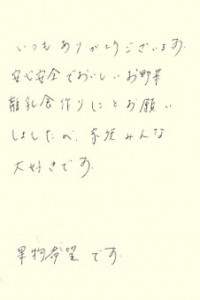 いつもありがとうございます。
安心安全でおいしいお野菜
離乳食作りにとお願い
しましたが、家族みんな
大好きです。
果物希望です。